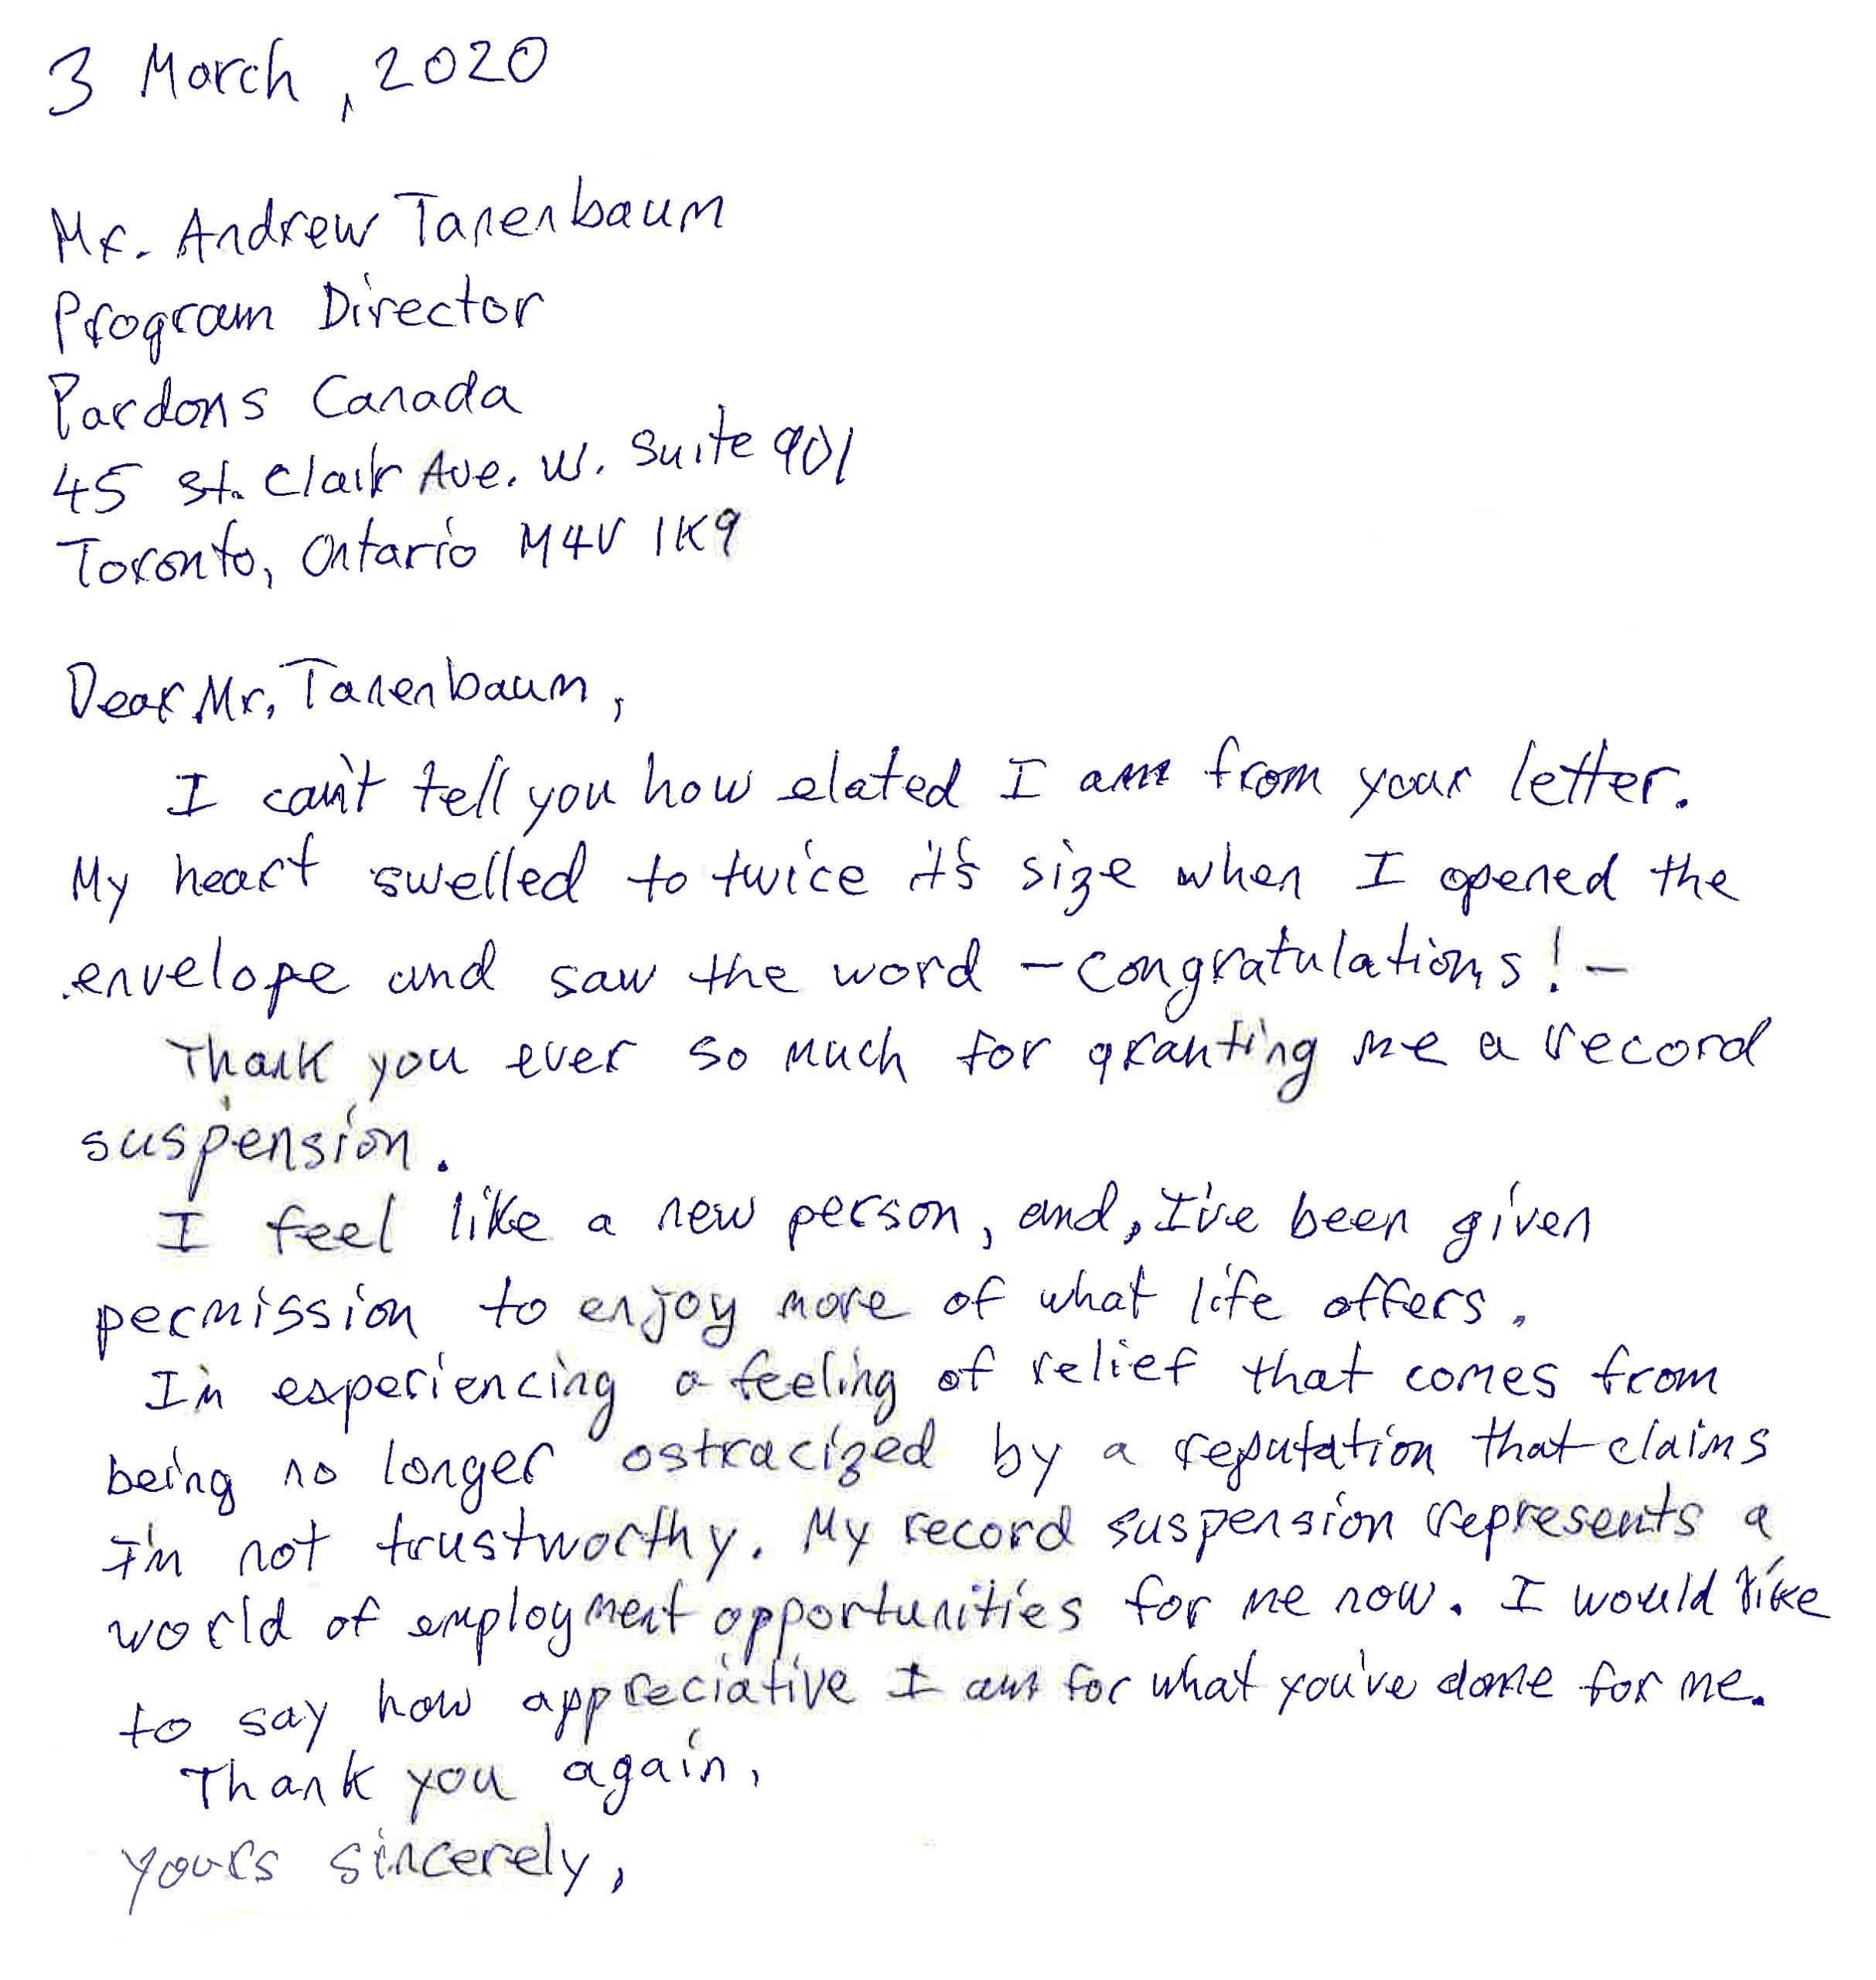 3 March, 2020
Mr. Andrew Tanenbaum
Program Director
Pardons Canada
45 St. Clair Ave. W. Suite 901
Toronto, Ontario M4V 1K9
Dear Mr. Tanenbaum,
I can't tell you how elated I am from your letter.
My heart swelled to twice it's size when I opened the
envelope and saw the word - congratulations! -
Thank you ever so much for granting me a record
suspension.
I feel like a new person, and, I've been given
permission to enjoy more of what life offers.
I'm experiencing a feeling of relief that comes from
being no longer ostracized by a reputation that claims
I'm not trustworthy. My record suspension represents a
world of employment opportunities for me now. I would like
to say how appreciative I am for what you've done for me.
Thank you again,
Yours sincerely,